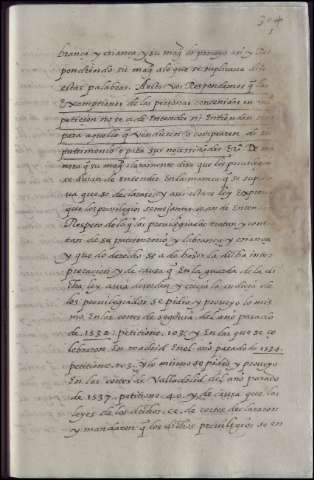 304
1
brança y criança, y su mag. lo proveyo asi y Res
pondiendo su mag. a lo que se suplicava dize
estas palabras. A esto vos Respondemos q. las
Exemptiones de las personas contenidas en vra
petiçion no se a de entender ni Entiendan si no
para aquello q. vendieren o compraren de su
patrimonio o para sus neçessidades Etª. De ma
nera q. su mag. claramente dize que los privilegios
se avian de entender En la manera q. se supli
ca que se declarase, y assi es lei y ley Expresa
que los privilegios semejantes se an de Enten
Respeto de lo q. los previlegiados tratan y con
tan de su patrimonio y labrança y criança
y que de derecho se a de hazer la dicha inter
pretaçion y de causa q. En la guarda de la di
cha ley avia desorden, y creçia la maliçia de
los previlegiados se pidio y proveyo lo mis
mo En las cortes de segovia del año passado
de 1532. petiçione. 103. y En las que se ce
lebraron En madrid En el año passado de 1534.
petiçione. 103. y lo mismo se pidio y proveyo
En las cortes de Valladolid del año passado
de 1537. petiçione. 40. y de causa que las
leyes de los dichos. cc. de cortes declararon
y mandaron q. los dichos previlegios se en